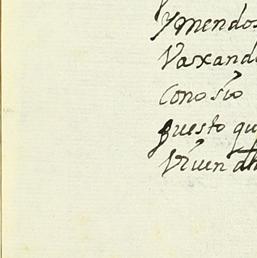 Ymendos
Vaxand
Conosio
questo qu
Viven